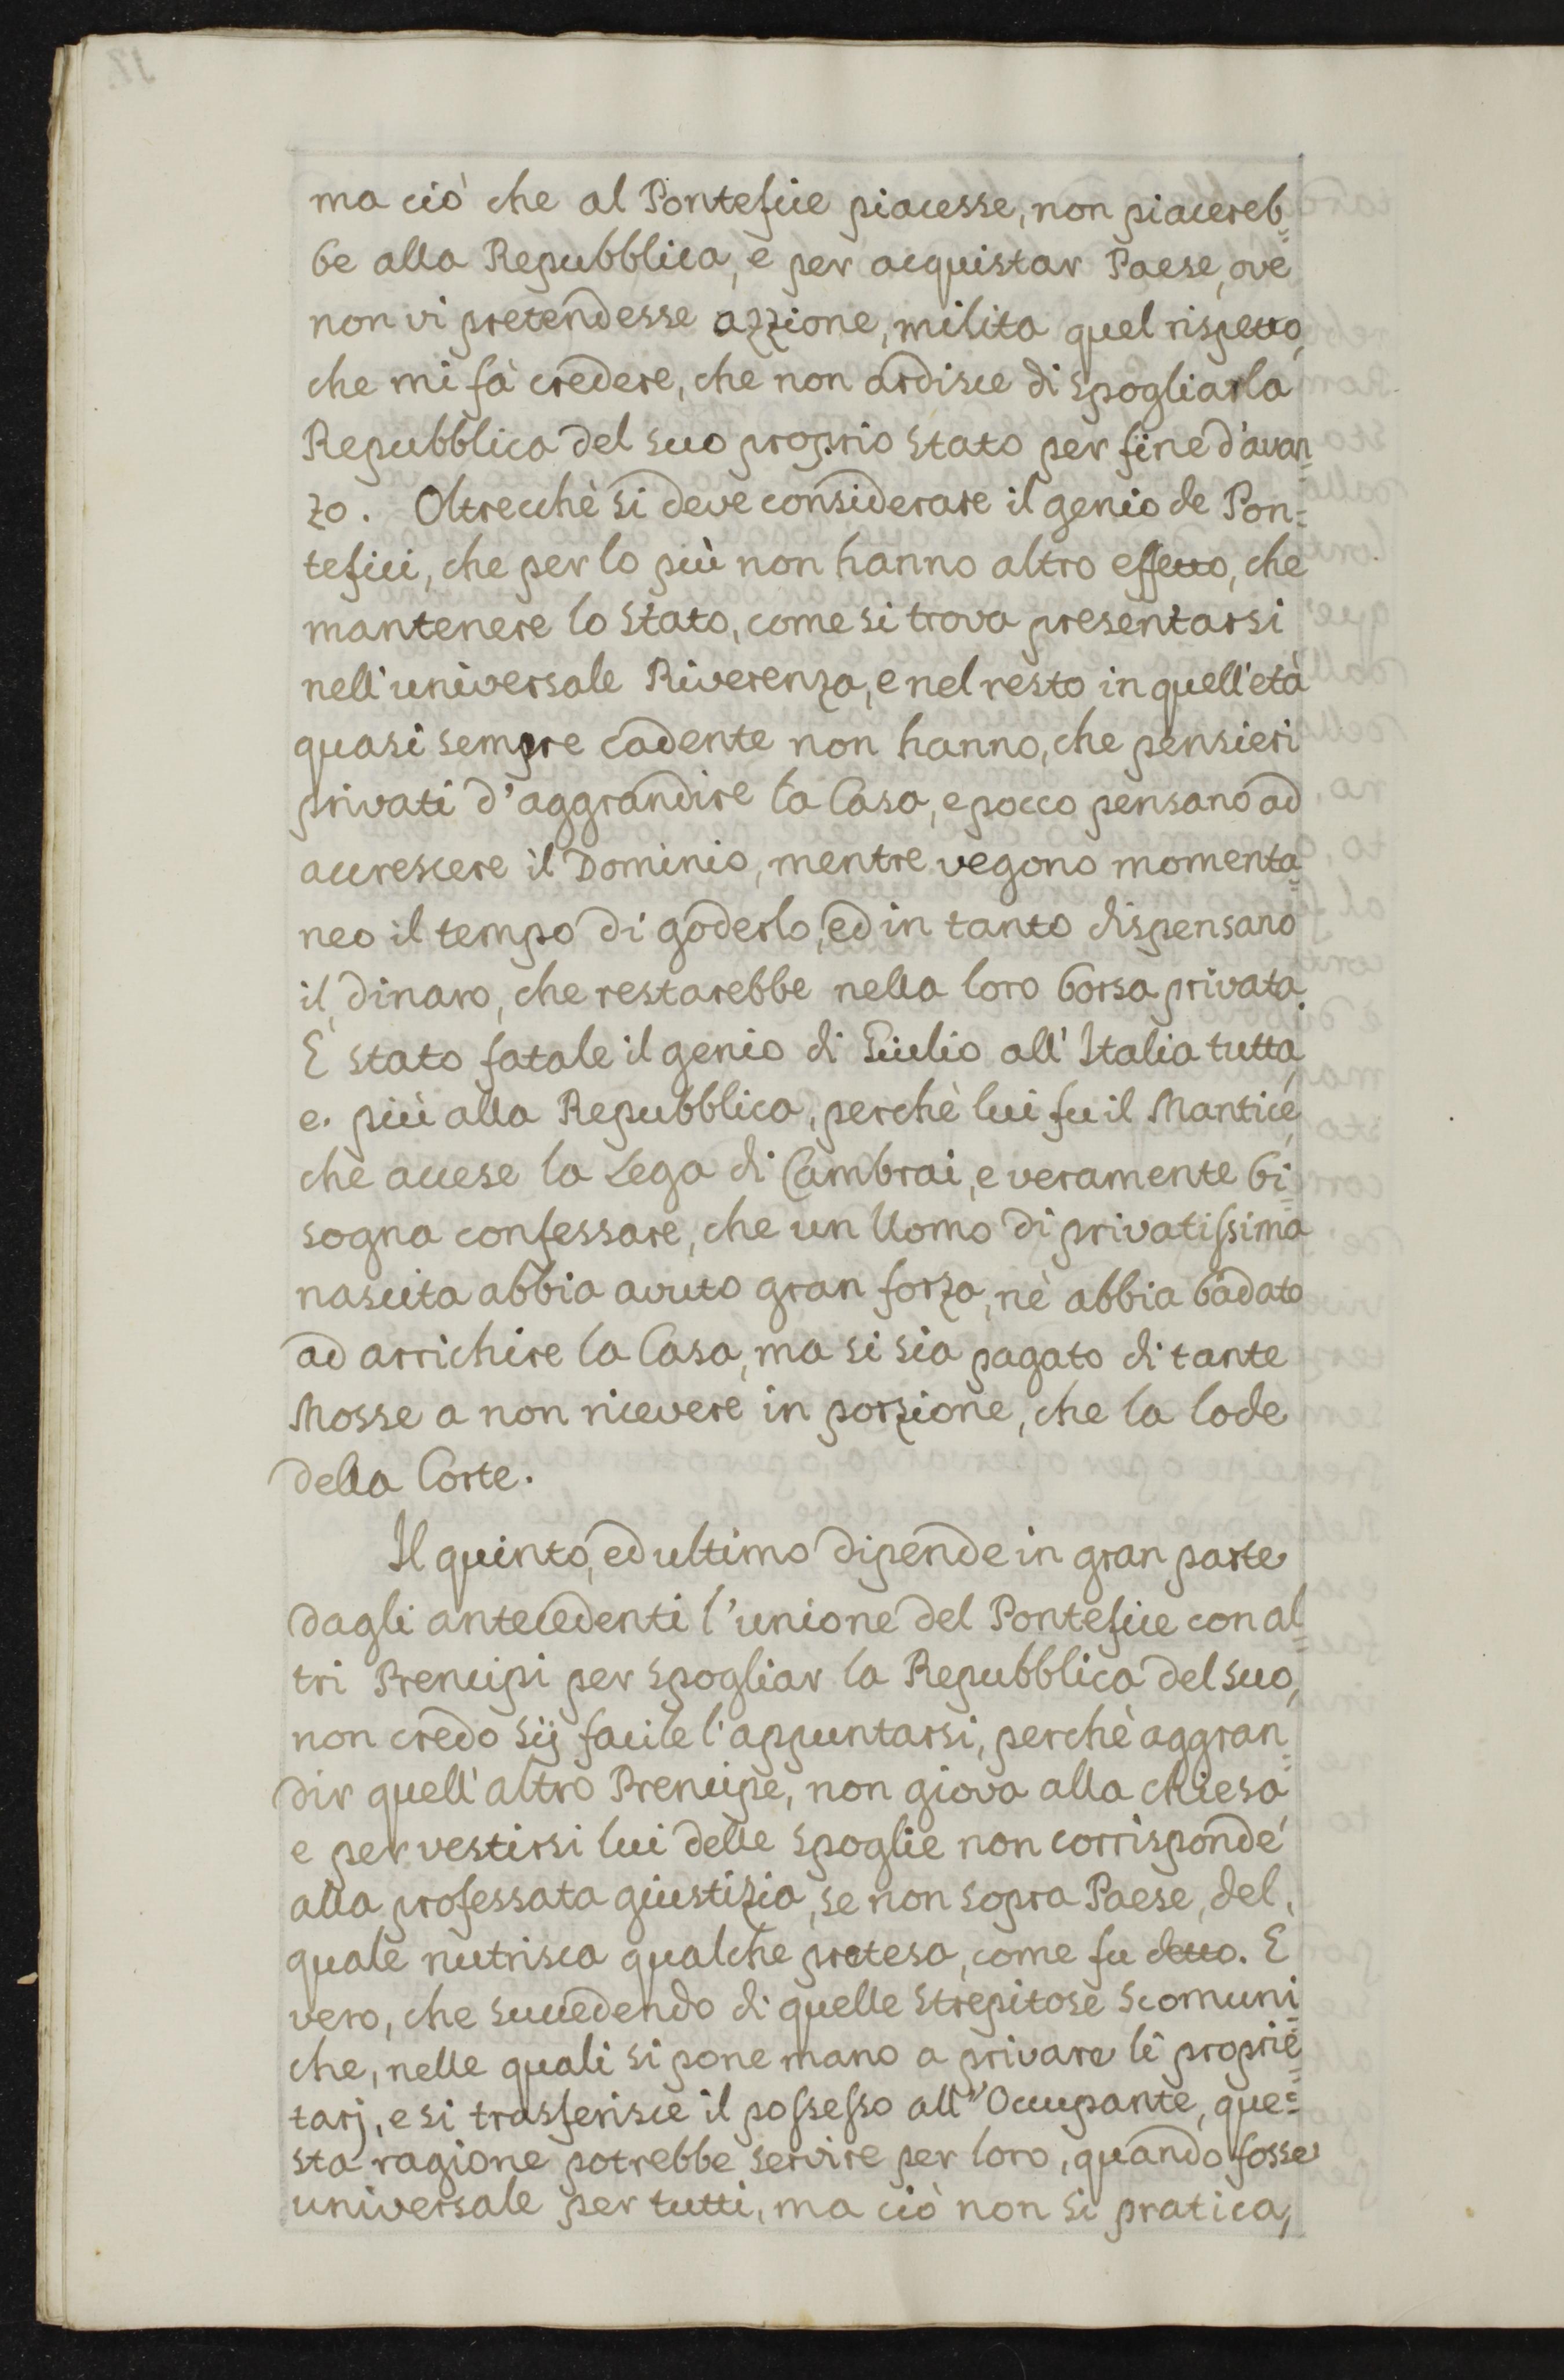 ma ciò che al Pontefice piacesse, non piacereb=
be alla Repubblica, e per acquistar Paese, ove
non vi pretendesse azzione, milita quel rispetto,
che mi fà credere, che non ardisce di spogliar la
Repubblica del suo proprio stato per fine d'avan=
zo. Oltrecchè si deve considerare il genio de Pon=
tefici, che per lo più non hanno altro effetto, che
mantenere lo stato, come si trova presentarsi
nell'universale Riverenza, e nel resto in quell'età
quasi sempre cadente non hanno, che pensieri
privati d'aggrandire la Casa, e pocco pensano ad
accrescere il Dominio, mentre vegono momenta=
neo il tempo di goderlo, ed in tanto dispensano
il dinaro, che restarebbe nella loro borsa privata.
È stato fatale il genio di Giulio all'Italia tutta,
e più alla Repubblica, perchè lui fu il Mantice,
che accese la Lega di Cambrai, e veramente bi=
sogna confessare, che un Uomo di privatissima
nascita abbia avuto gran forza, nè abbia badato
ad arrichire la Casa, ma si sia pagato di tante
Mosse a non ricevere in porzione, che la lode
della Corte.
Il quinto, ed ultimo dipende in gran parte
dagli antecedenti l'unione del Pontefice con al=
tri Prencipi per spogliar la Repubblica del suo,
non credo sij facile l'appuntarsi, perchè aggran=
dir quell'altro Prencipe, non giova alla chiesa
e per vestirsi lui delle spoglie non corrisponde
alla professata giustizia, se non sopra Paese, del
quale nutrisca qualche pretesa, come fu detto. E
vero, che succedendo di quelle strepitose scomuni=
che, nelle quali si pone mano a privare li proprie=
tarj, e si trasferisce il possesso all'Occupante, que=
sta ragione potrebbe servire per loro, quando fosse
universale per tutti, ma ciò non si pratica,